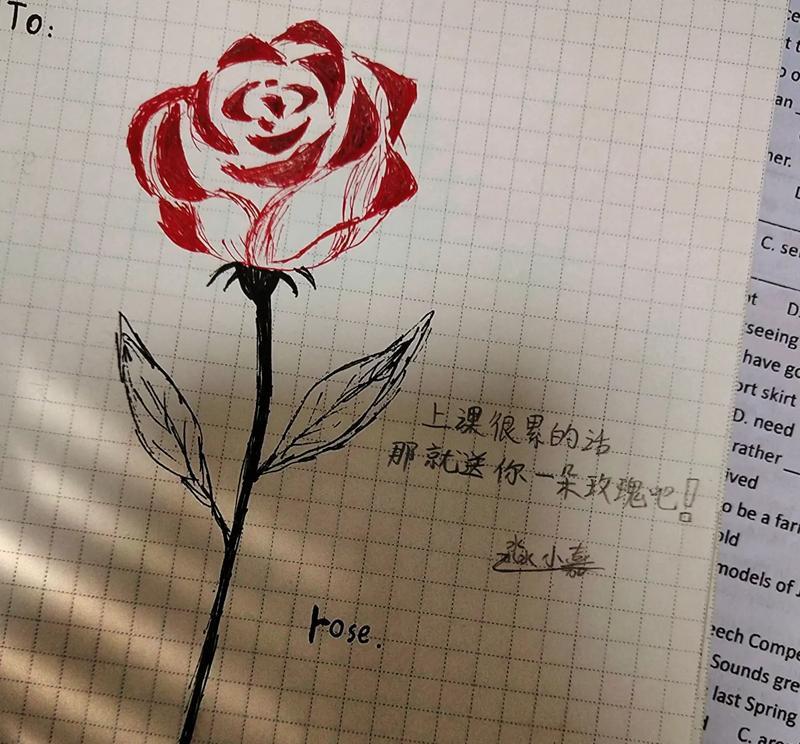 To:
上课很累的话
那就送你一朵玫瑰吧!
小嘉
rose.
an
her.
C. se
D.
seeing
have go
ort skirt
D. need
rather
ived
o be a far
old
models of
eech Compe
Sounds gre
last Spring
C. are